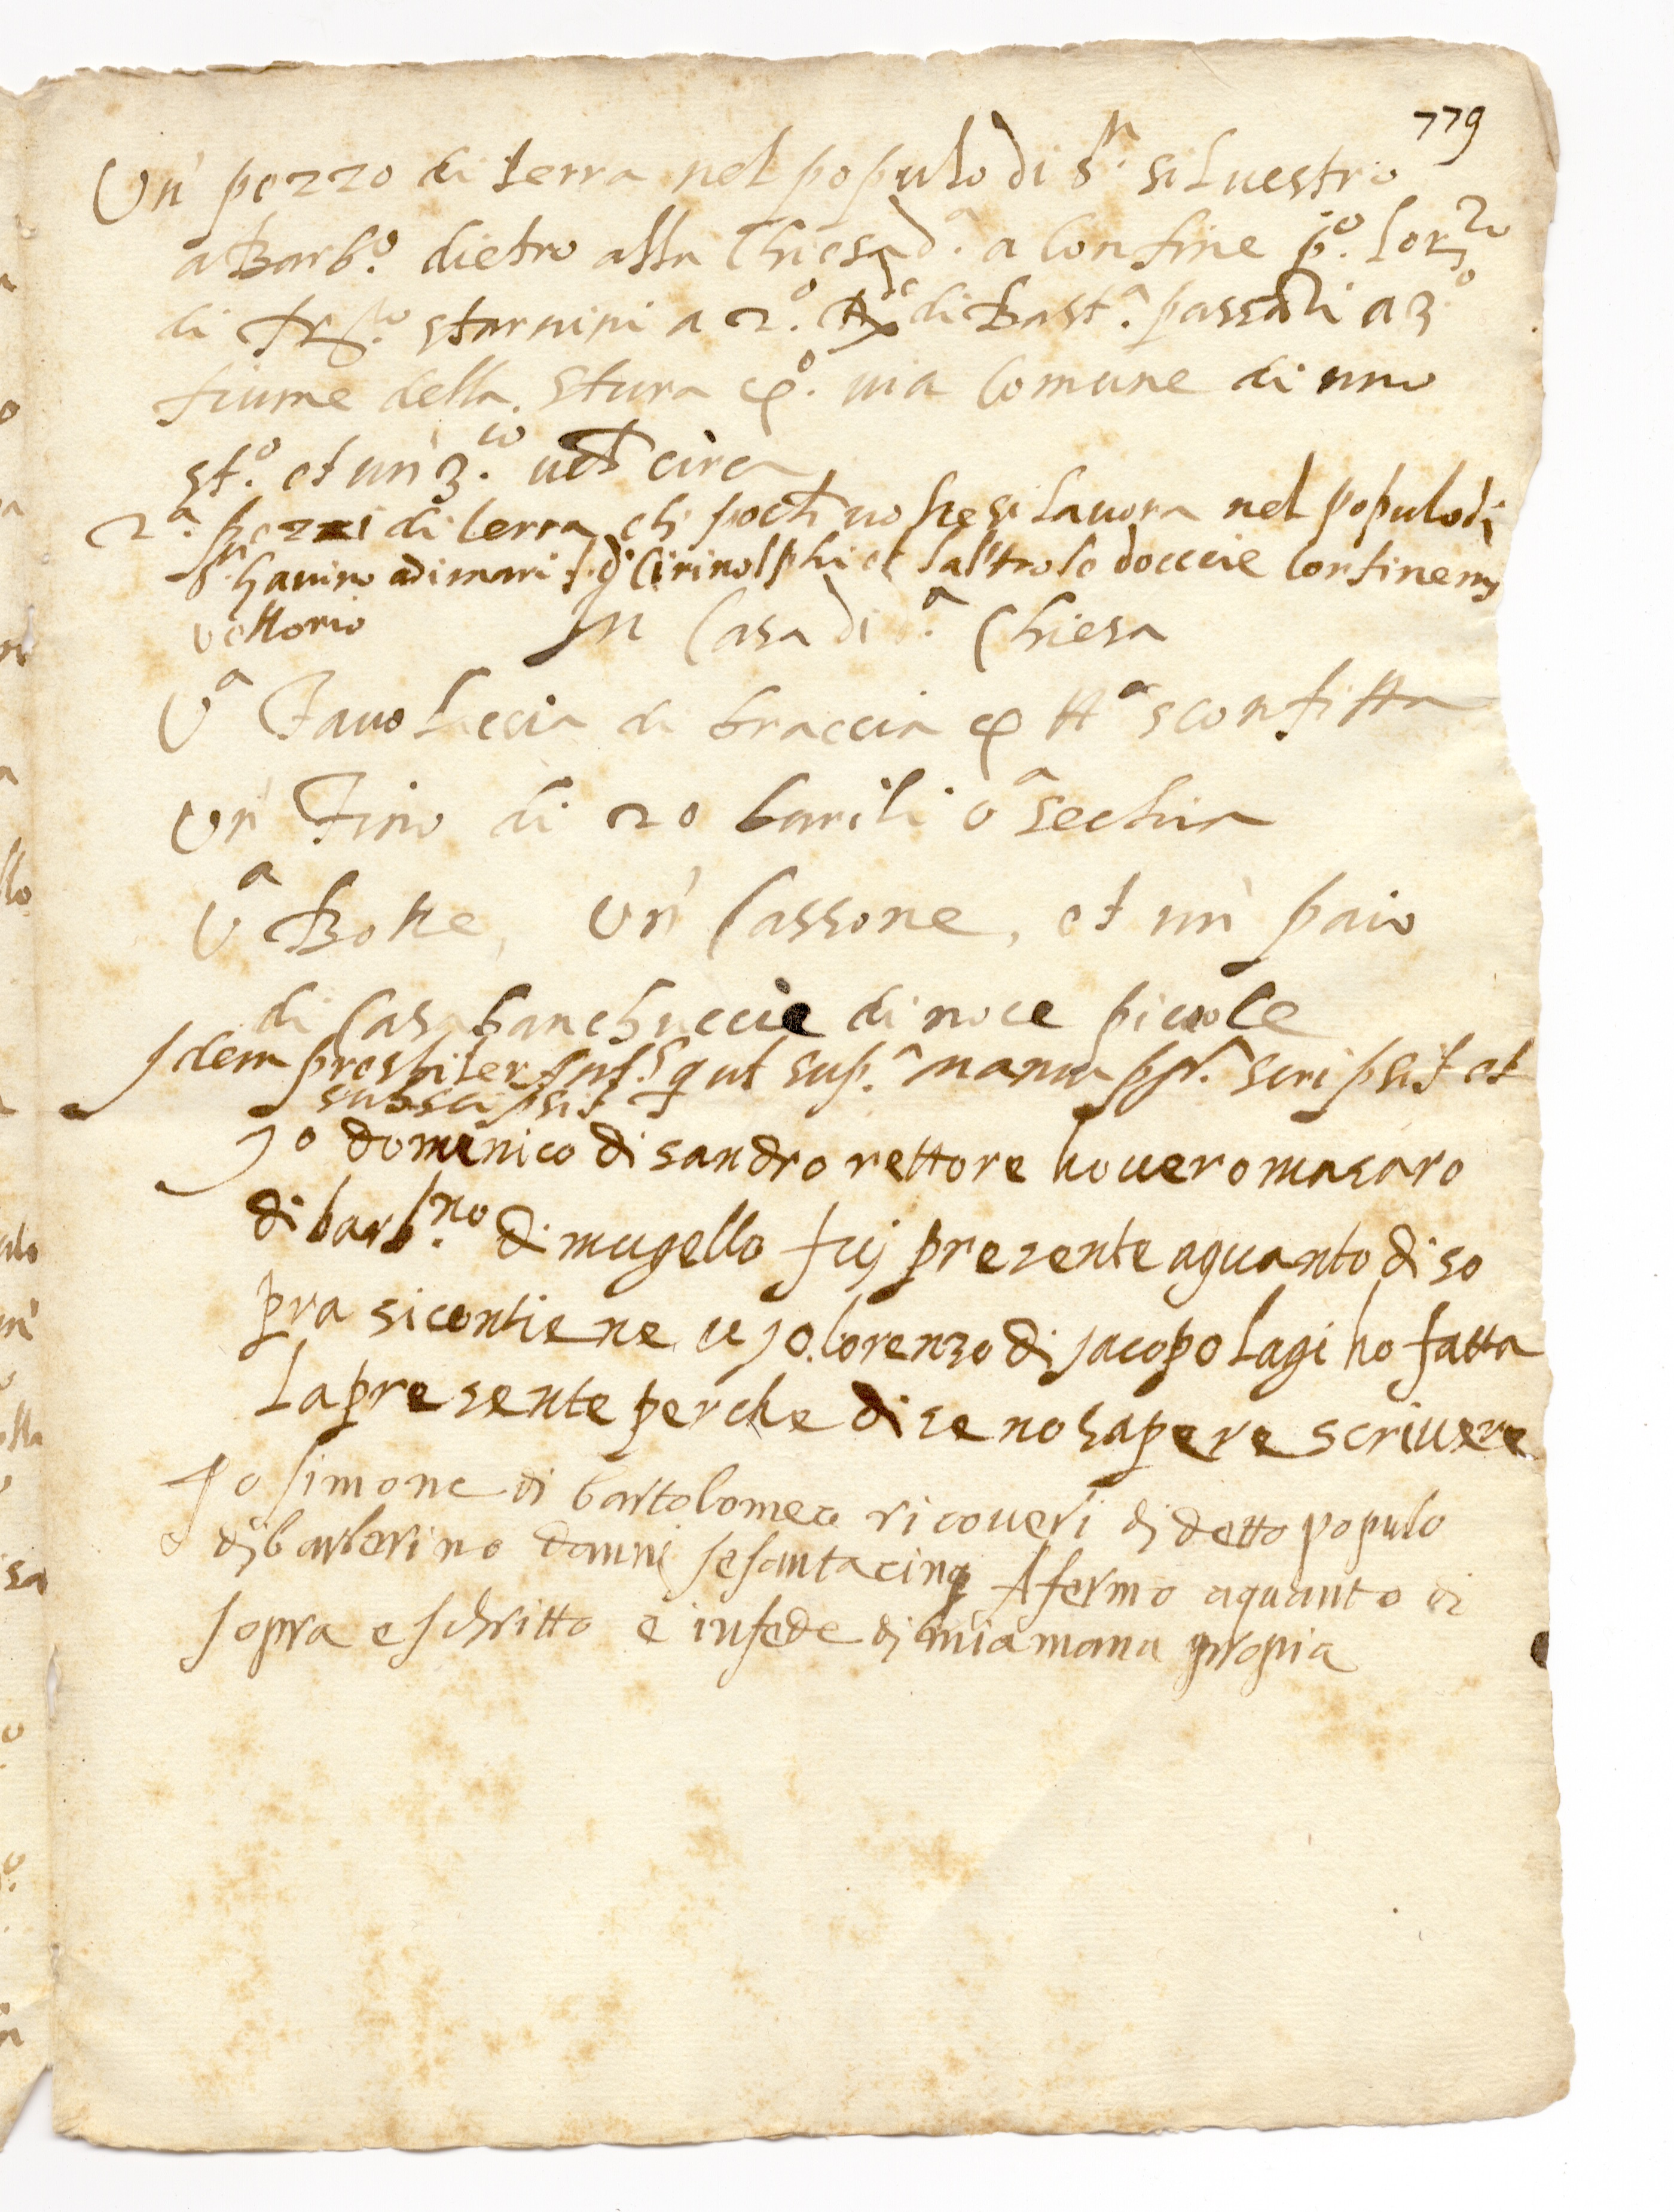 779
Un' pezzo di terra nel populo di S.to siluestro
a Barb.o dietro alla Chiesa d.a a Confine p.o lor.zo
di starnini a 2.o di Bast.a passati a 3.o
fiume della stura via Comune di uno
st.o et un' 3.o circa
2.a pezzi di terra che si lauora nel populo di
S. Gauino adimari et laltro le doccie
vettorio In Casa di d.a Chiesa
V.a Tauolaccia di braccia sconfitta
Un Tino di 20 barili v.a sechia
V.a Botte, Un' Cassone, et un' paio
di Casabanchuccie di noce picole
Idem presbiter ut sup.a manu scripsit et
subscripsit
Jo dominico di sandro rettore houero masaro
di barb.no di mugello fuj presente aquanto di so
pra si contiene e jo lorenzo di jacopo Lagi ho fatta
la presente perche dise no sapere scriuere
Jo simone di bartolomeo ricoueri di detto populo
di barberino danni sesantacinq Afermo aquanto di
sopra e schritto e infede di mia mano propia